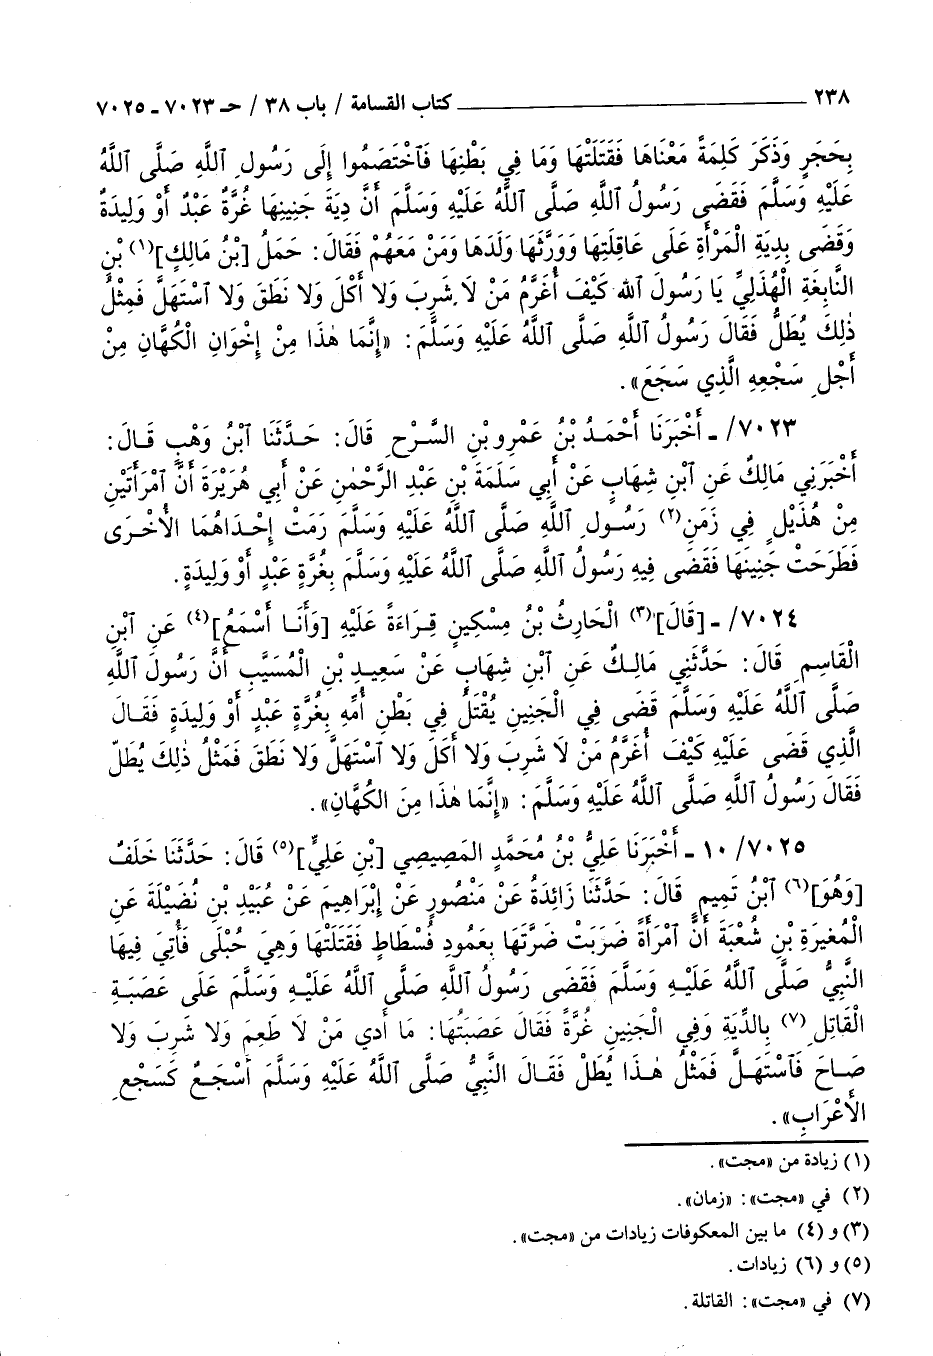 ٢٣٨ ــــــــــــــــــــــــــــــــــــ كتاب القسامة / باب ٣٨ / حـ ٧٠٢٣ ـ ٧٠٢٥
بِحَجَرٍ وَذَكَرَ كَلِمَةً مَعْنَاهَا فَقَتَلَتْهَا وَمَا فِي بَطْنِهَا فَٱخْتَصَمُوا إِلَى رَسُولِ ٱللَّهِ صَلَّى ٱللَّهُ
عَلَيْهِ وَسَلَّمَ فَقَضَى رَسُولُ ٱللَّهِ صَلَّى ٱللَّهُ عَلَيْهِ وَسَلَّمَ أَنَّ دِيَةَ جَنِينِهَا غُرَّةٌ عَبْدٌ أَوْ وَلِيدَةٌ
وَقَضَى بِدِيَةِ الْمَرْأَةِ عَلَى عَاقِلَتِهَا وَوَرَّثَهَا وَلَدَهَا وَمَنْ مَعَهُمْ فَقَالَ: حَمَلُ [بْنُ مَالِكٍ](١) بْنِ
النَّابِغَةِ الْهُذَلِيِّ يَا رَسُولَ الله كَيْفَ أُغَرَّمُ مَنْ لَا شَرِبَ وَلَا أَكَلَ وَلَا نَطَقَ وَلَا ٱسْتَهَلَّ فَمِثْلُ
ذٰلِكَ يُطَلُّ فَقَالَ رَسُولُ ٱللَّهِ صَلَّى ٱللَّهُ عَلَيْهِ وَسَلَّمَ: «إِنَّمَا هٰذَا مِنْ إِخْوَانِ الْكُهَّانِ مِنْ
أَجْلِ سَجْعِهِ الَّذِي سَجَعَ».
٧٠٢٣/ ـ أَخْبَرَنَا أَحْمَدُ بْنُ عَمْرِو بْنِ السَّرْحِ قَالَ: حَدَّثَنَا ٱبْنُ وَهْبٍ قَالَ:
أَخْبَرَنِي مَالِكٌ عَنِ ٱبْنِ شِهَابٍ عَنْ أَبِي سَلَمَةَ بْنِ عَبْدِ الرَّحْمٰنِ عَنْ أَبِي هُرَيْرَةَ أَنَّ ٱمْرَأَتَيْنِ
مِنْ هُذَيْلٍ فِي زَمَنِ(٢) رَسُولِ ٱللَّهِ صَلَّى ٱللَّهُ عَلَيْهِ وَسَلَّمَ رَمَتْ إِحْدَاهُمَا الْأُخْرَى
فَطَرَحَتْ جَنِينَهَا فَقَضَى فِيهِ رَسُولُ ٱللَّهِ صَلَّى ٱللَّهُ عَلَيْهِ وَسَلَّمَ بِغُرَّةٍ عَبْدٍ أَوْ وَلِيدَةٍ.
٧٠٢٤/ ـ [قَالَ](٣) الْحَارِثُ بْنُ مِسْكِينٍ قِرَاءَةً عَلَيْهِ [وَأَنَا أَسْمَعُ](٤) عَنِ ٱبْنِ
الْقَاسِمِ قَالَ: حَدَّثَنِي مَالِكٌ عَنِ ٱبْنِ شِهَابٍ عَنْ سَعِيدِ بْنِ الْمُسَيَّبِ أَنَّ رَسُولَ ٱللَّهِ
صَلَّى ٱللَّهُ عَلَيْهِ وَسَلَّمَ قَضَى فِي الْجَنِينِ يُقْتَلُ فِي بَطْنِ أُمِّهِ بِغُرَّةٍ عَبْدٍ أَوْ وَلِيدَةٍ فَقَالَ
الَّذِي قَضَى عَلَيْهِ كَيْفَ أُغَرَّمُ مَنْ لَا شَرِبَ وَلَا أَكَلَ وَلَا ٱسْتَهَلَّ وَلَا نَطَقَ فَمْثُلُ ذٰلِكَ يُطَلّ
فَقَالَ رَسُولُ ٱللَّهِ صَلَّى ٱللَّهُ عَلَيْهِ وَسَلَّمَ: «إِنَّمَا هٰذَا مِنَ الْكُهَّانِ».
٧٠٢٥/ ١٠ ـ أَخْبَرَنَا عَلِيُّ بْنُ مُحَمَّدٍ المَصِيصِي [بْنِ عَلِيٍّ](٥) قَالَ: حَدَّثَنَا خَلَفٌ
[وَهُوَ](٦) ٱبْنُ تَمِيمٍ قَالَ: حَدَّثَنَا زَائِدَةُ عَنْ مَنْصُورٍ عَنْ إِبْرَاهِيمَ عَنْ عُبَيْدِ بْنِ نُضَيْلَةَ عَنِ
الْمُغِيرَةِ بْنِ شُعْبَةَ أَنَّ ٱمْرَأَةً ضَرَبَتْ ضَرَّتَهَا بِعَمُودِ فُسْطَاطٍ فَقَتَلَتْهَا وَهِيَ حُبْلَى فَأُتِيَ فِيهَا
النَّبِيُّ صَلَّى ٱللَّهُ عَلَيْهِ وَسَلَّمَ فَقَضَى رَسُولُ ٱللَّهِ صَلَّى ٱللَّهُ عَلَيْهِ وَسَلَّمَ عَلَى عَصَبَةِ
الْقَاتِلِ(٧) بِالدِّيَةِ وَفِي الْجَنِينِ غُرَّةً فَقَالَ عَصَبَتُهَا: مَا أَدي مَنْ لَا طَعِمَ وَلَا شَرِبَ وَلَا
صَاحَ فَٱسْتَهَلَّ فَمْثُلُ هٰذَا يُطَلْ فَقَالَ النَّبِيُّ صَلَّى ٱللَّهُ عَلَيْهِ وَسَلَّمَ أَسَْجَعٌ كَسَجْعِ
الأَعْرَابِ».
(١) زيادة من «مجت».
(٢) في «مجت»: «زمان».
(٣) و (٤) ما بين المعكوفات زيادات من «مجت».
(٥) و (٦) زيادات.
(٧) في «مجت»: القاتلة.